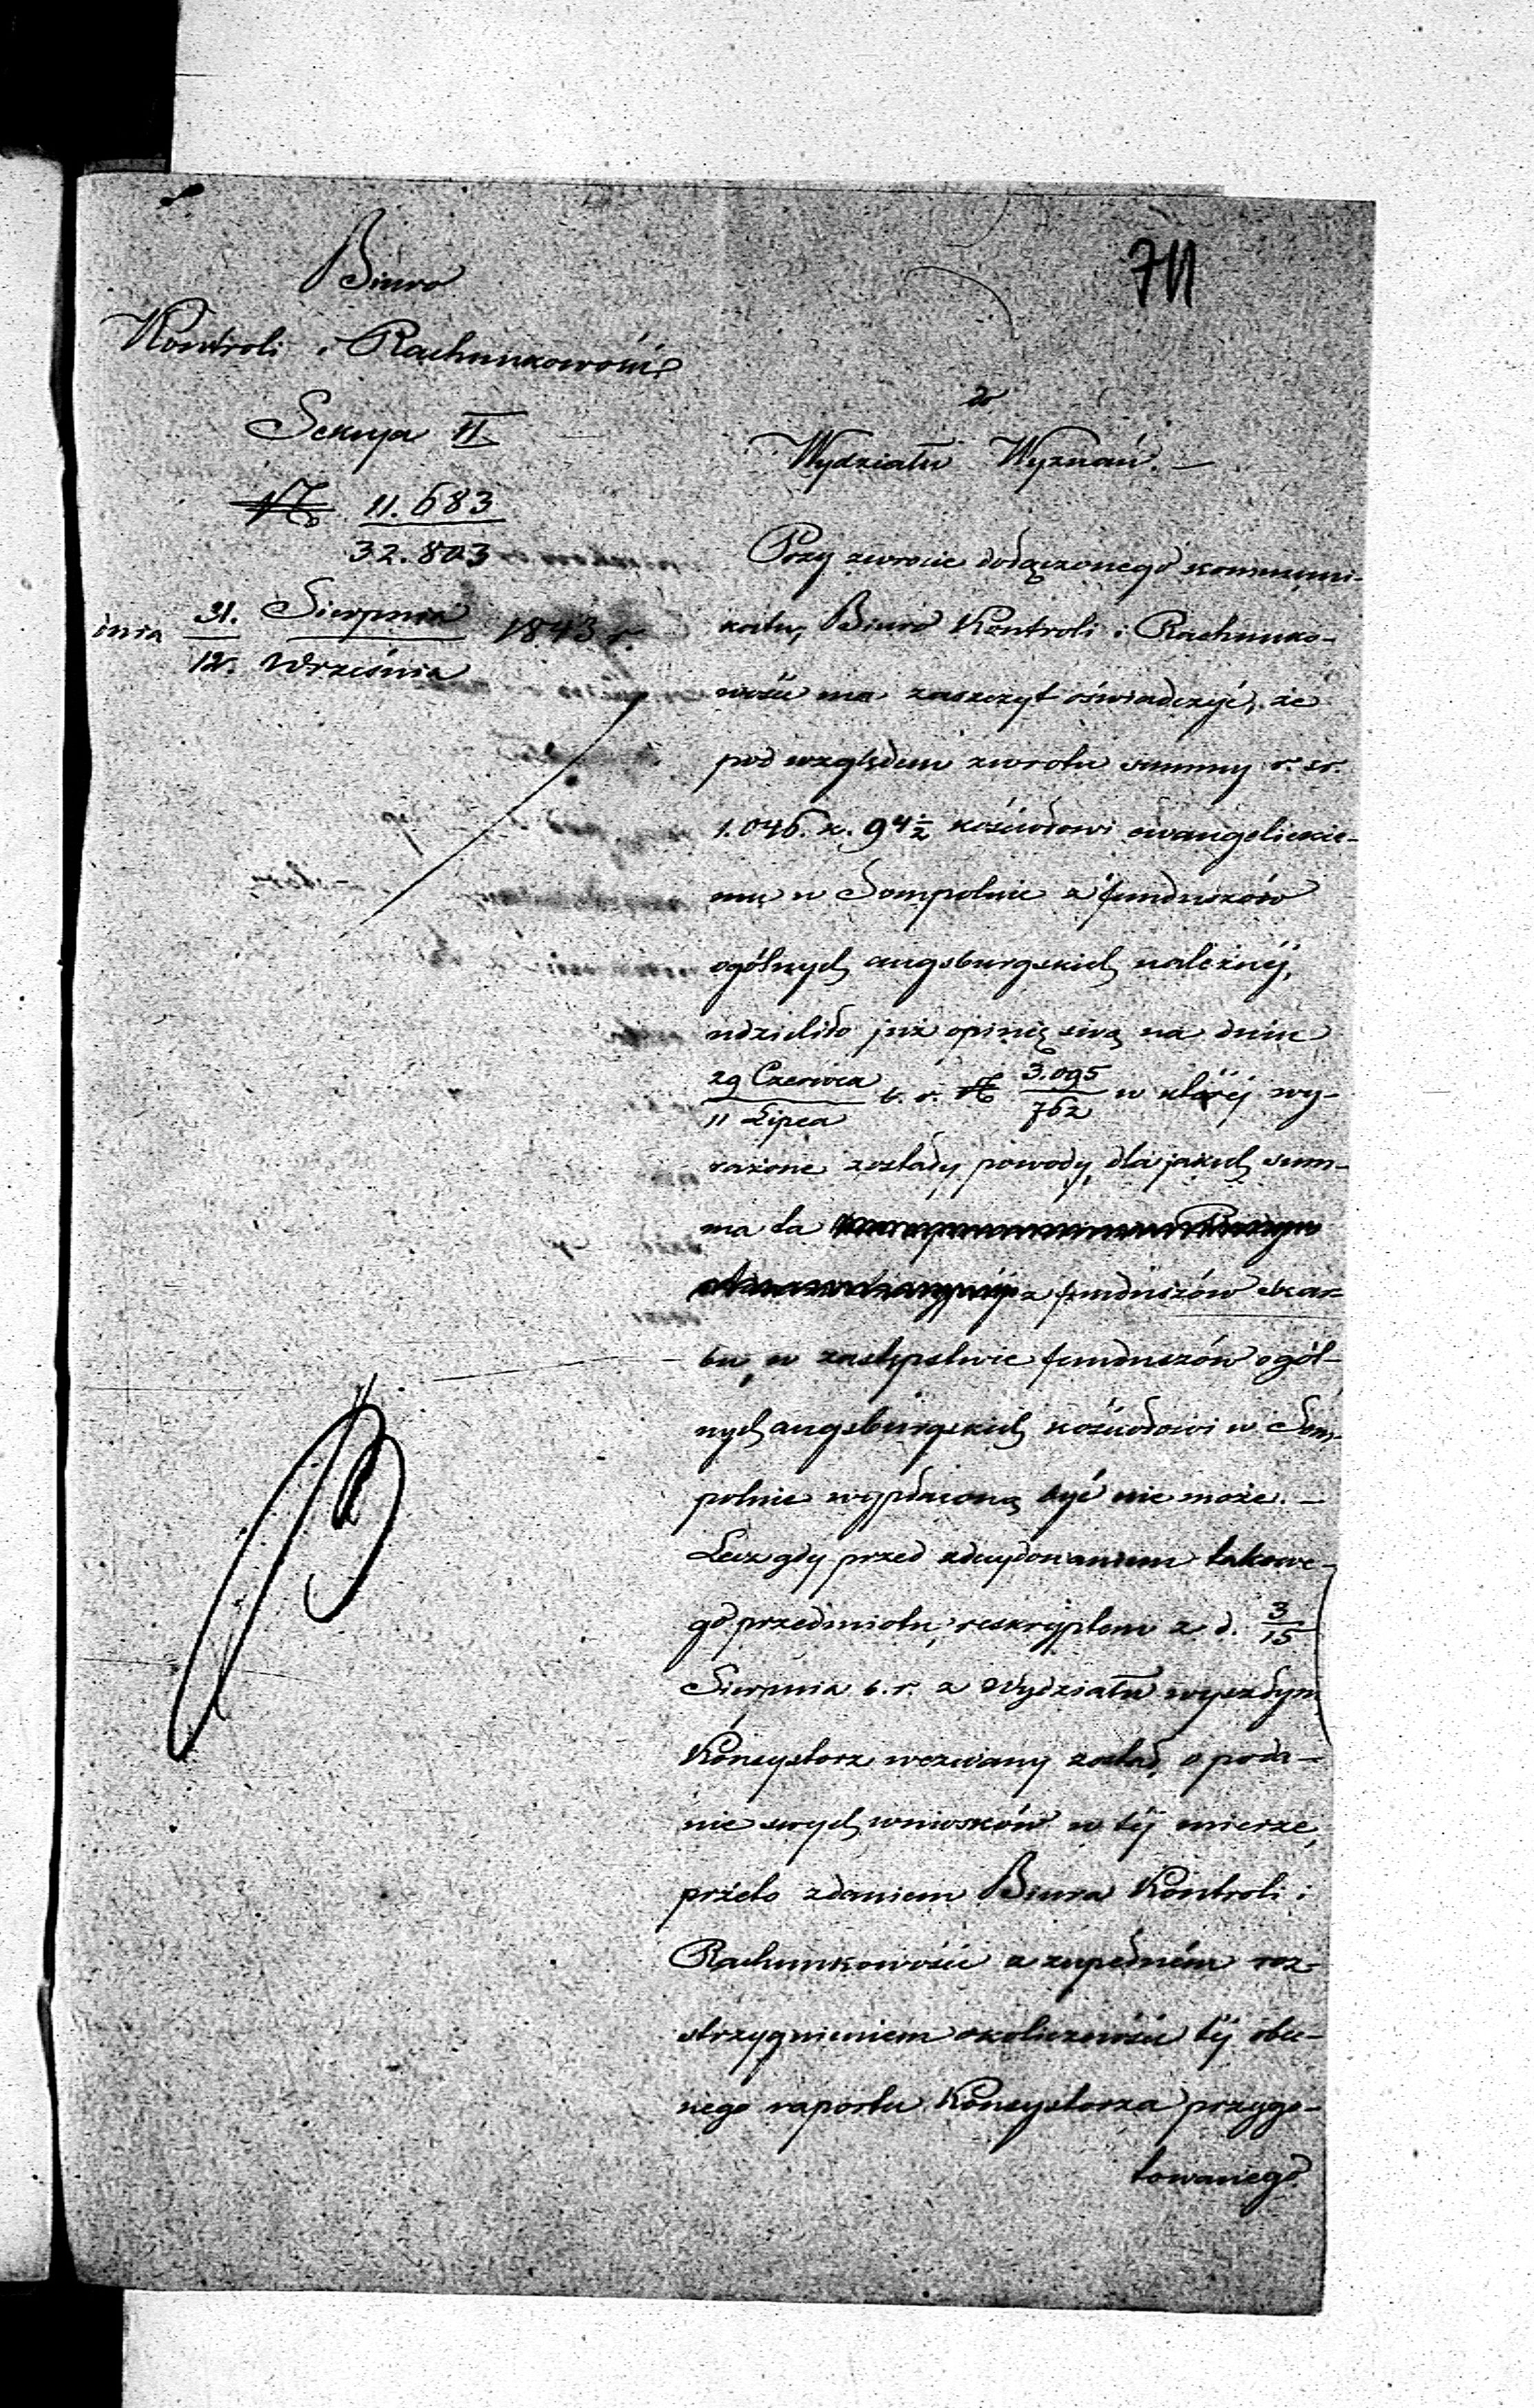 711
Biuro
Kontroli i Rachunkowości
Sekcya II
№ 11.683
32.803
dnia 31. Sierpnia 1843 r.
12. Września
do
Wydziału Wyznań. —
Przy zwrocie dołączonego kommuni-
katu, Biuro Kontroli i Rachunko-
wości ma zaszczyt oświadczyć, że
pod względem zwrotu summy r. sr.
1.046. k. 94½ kościołowi ewangelickie-
mu w Sompolnie z funduszów
ogólnych augsburgskich należnéj,
udzieliło już opinię swą na dniu
29 Czerwca
11 Lipca b. r. № 3.095
762 w któréj wy-
rażone zostały powody, dla jakich sum-
ma ta
z funduszów skar-
bu, w zastępstwie funduszów ogól-
nych augsburgskich kościołowi w Som-
polnie wypłaconą być nie może. —
Lecz gdy przed zdecydowaniem takowe-
go przedmiotu, reskryptem z d. 3/15
Sierpnia b. r. z Wydziału wyszłym
Konsystorz wezwany został, o poda-
nie swych wniosków w téj mierze,
przeto zdaniem Biura Kontroli i
Rachunkowości z zupełném roz-
strzygnieniem okoliczności téj obe-
nego raportu Konsystorza przygo-
towanego